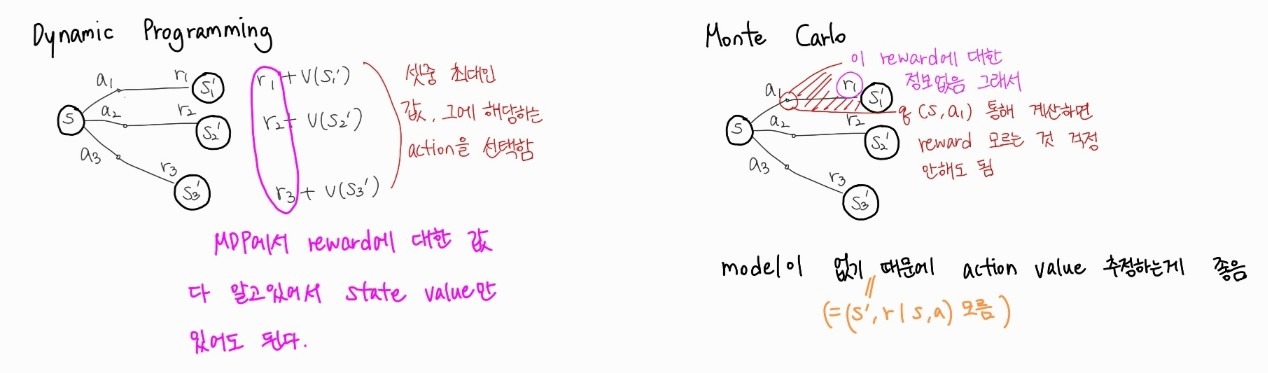 Dynamic Programming
a₁ r₁ S₁'
S a₂ r₂ S₂'
a₃ r₃ S₃'
r₁ + V(S₁')
r₂ + V(S₂')
r₃ + V(S₃')
셋중 최대인
값, 그에 해당하는
action을 선택함
MDP에서 reward에 대한 값
다 알고있어서 state value만
있어도 된다.
Monte Carlo
a₁ r₁ S₁'
S a₂ r₂ S₂'
a₃ r₃ S₃'
이 reward에 대한
정보없음 그래서
q(s,a₁) 통해 계산하면
reward 모르는 것 걱정
안해도 됨
model이 없기 때문에 action value 추정하는게 좋음
(=(s',r|s,a) 모름)